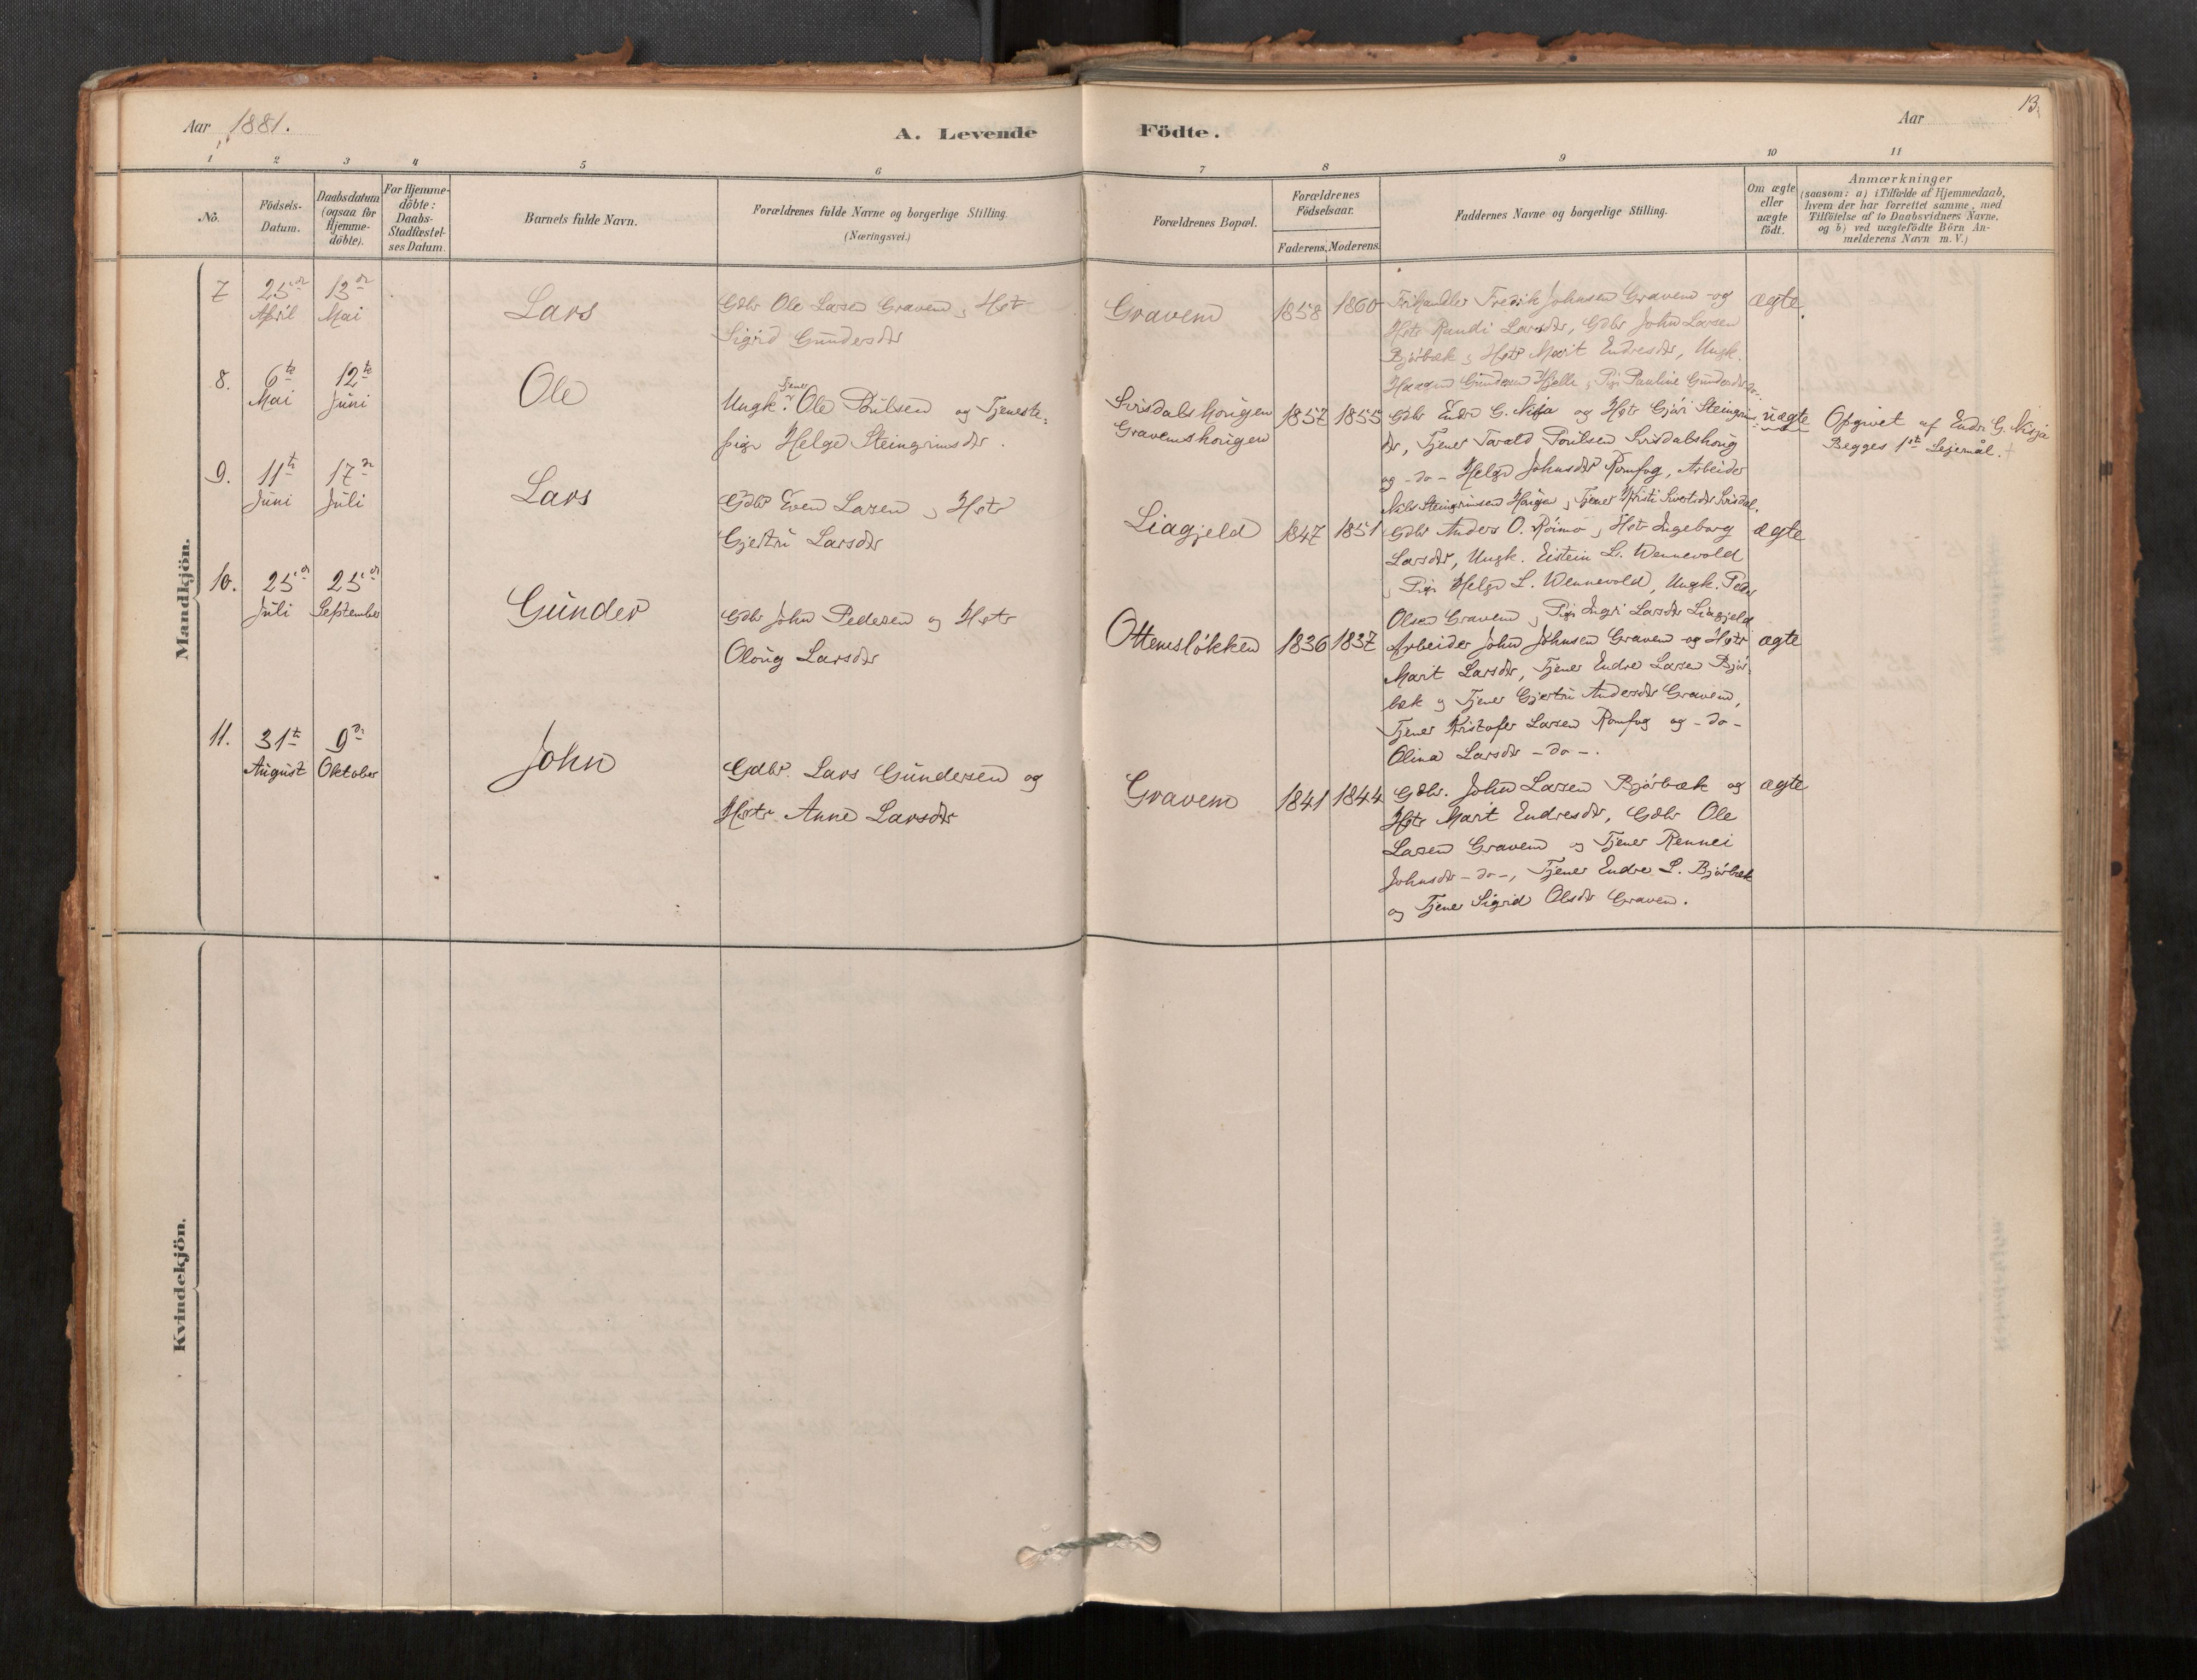 Aar 1881.
A. Levende
Födte.
Aar
13.
1 2 3 4 5 6 7 8 9 10 11
No.
Födsels-
Datum.
Daabsdatum
(ogsaa for
Hjemme-
döbte).
For Hjemme-
döbte:
Daabs-
Stadfæstel-
ses Datum.
Barnets fulde Navn.
Forældrenes fulde Navne og borgerlige Stilling.
(Næringsvei.)
Forældrenes Bopæl.
Forældrenes
Födselsaar.
Faderens. Moderens.
Faddernes Navne og borgerlige Stilling.
Om ægte
eller
uægte
födt.
Anmærkninger
(saasom: a) i Tilfælde af Hjemmedaab,
hvem der har forrettet samme, med
Tilföielse af to Daabsvidners Navne.
og b) ved uægtefödte Börn An-
melderens Navn m.V.)
Mandkjön.
7
25de
April
13de
Mai
Lars
Gdbr Ole Larsen Gravem, Hst
Sigrid Gundersdr
Gravem
1858
1860
Frihandler Fredrik Johnsen Gravem og
Hstr Randi Larsdr, Gdbr John Larsen
Bjórbæk, Hstr Marit Endresdr, Ungk.
Haagen Gundersen Hjelle, Pige Pauline Gundersdr
ægte
8.
6te
Mai
12te
Juni
Ole
Tjener
Ungk. Ole Poulsen og Tjeneste-
pige Helge Steingrimsdr.
Svisdalshougen
Gravemshougen
1857
1855
Gdbr Endre G. Nisja og Hstr Gjóri Steingrims-
dr, Tjener Tarald Poulsen Svisdalshoug
og -do- Helge Johnsdr Romfog, Arbeider
Nils Steingrimsen Hougen, Tjener Kristi Sivertsdr Svisdal.
uægte
Opgivet af Endre G. Nisja
Begges 1ste Lejermål.
9.
11te
Juni
17de
Juli
Lars
Gdbr Even Larsen, Hstr
Gjertru Larsdr
Liagjeld
1847
1851
Gdbr Anders O. Róimo, Hstr Ingeborg
Larsdr, Ungk. Eistein L. Wennevold
, Pige Helge L. Wennevold, Ungk. Peder
Olsen Gravem, Pige Ingri Larsdr Liagjeld
ægte
10.
25de
Juli
25de
September
Gunder
Gdbr John Pedersen og Hstr
Oloug Larsdr
Ottemslókken
1836
1837
Arbeider John Johnsen Gravem og Hstr
Marit Larsdr, Tjener Endre Larsen Bjór-
bæk og Tjener Gjertru Andersdr Gravem,
Tjener Kristofer Larsen Romfog og -do-
Olina Larsdr -do-.
ægte
11.
31te
August
9de
Oktober
John
Gdbr. Lars Gundersen og
Hstr Anne Larsdr
Gravem
1841
1844
Gdbr. John Larsen Bjórbæk og
Hstr Marit Endresdr, Gdbr Ole
Larsen Gravem og Tjener Rennei
Johnsdr -do-, Tjener Endre L. Bjórbæk
og Tjener Sigrid Olsdr Gravem.
ægte
Kvindekjön.